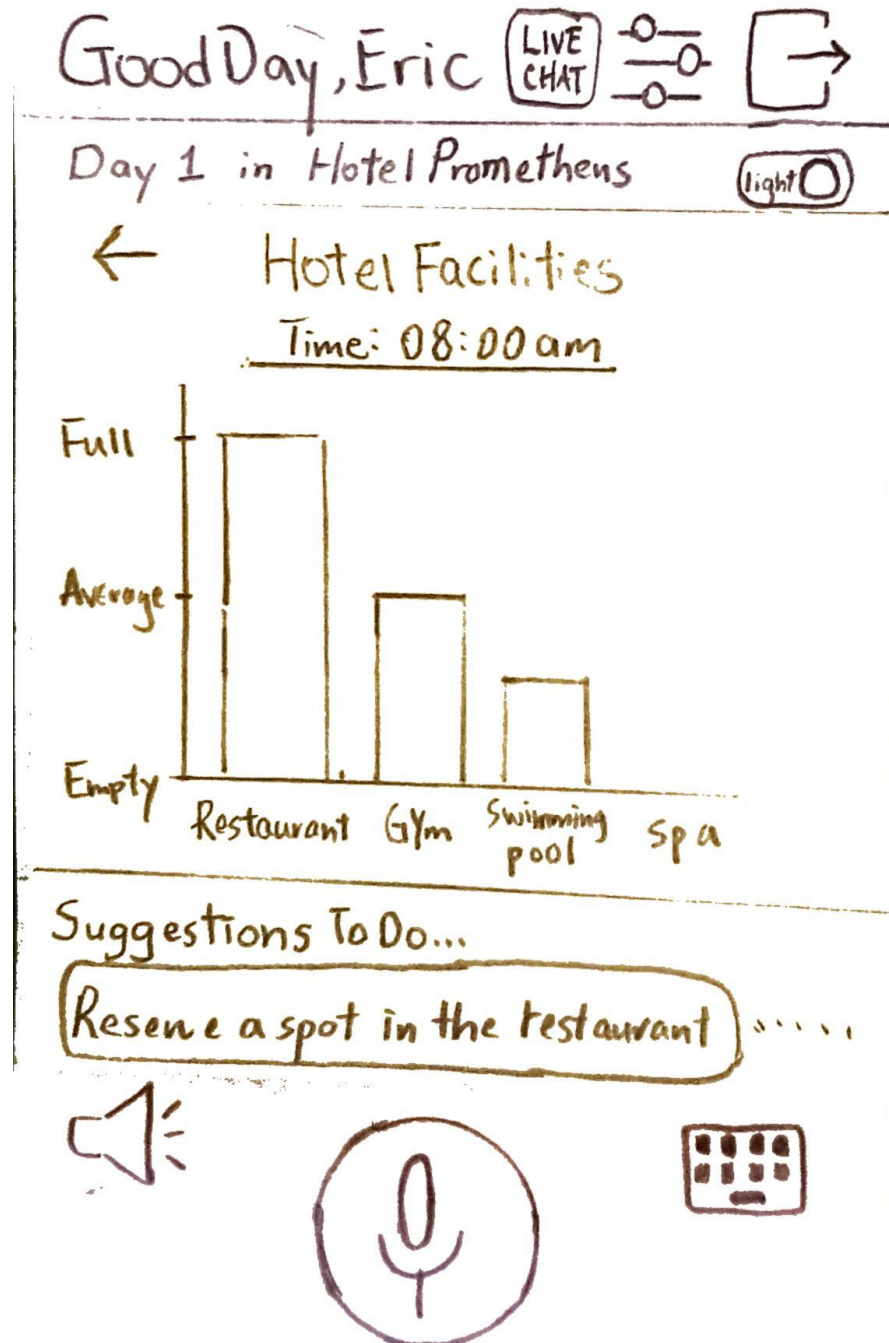 Good Day, Eric
LIVE
CHAT
Day 1 in Hotel Prometheus
light
Hotel Facilities
Time: 08:00 am
Full
Average
Empty
Restaurant
Gym
Swimming
pool
Spa
Suggestions To Do...
Reserve a spot in the restaurant .....